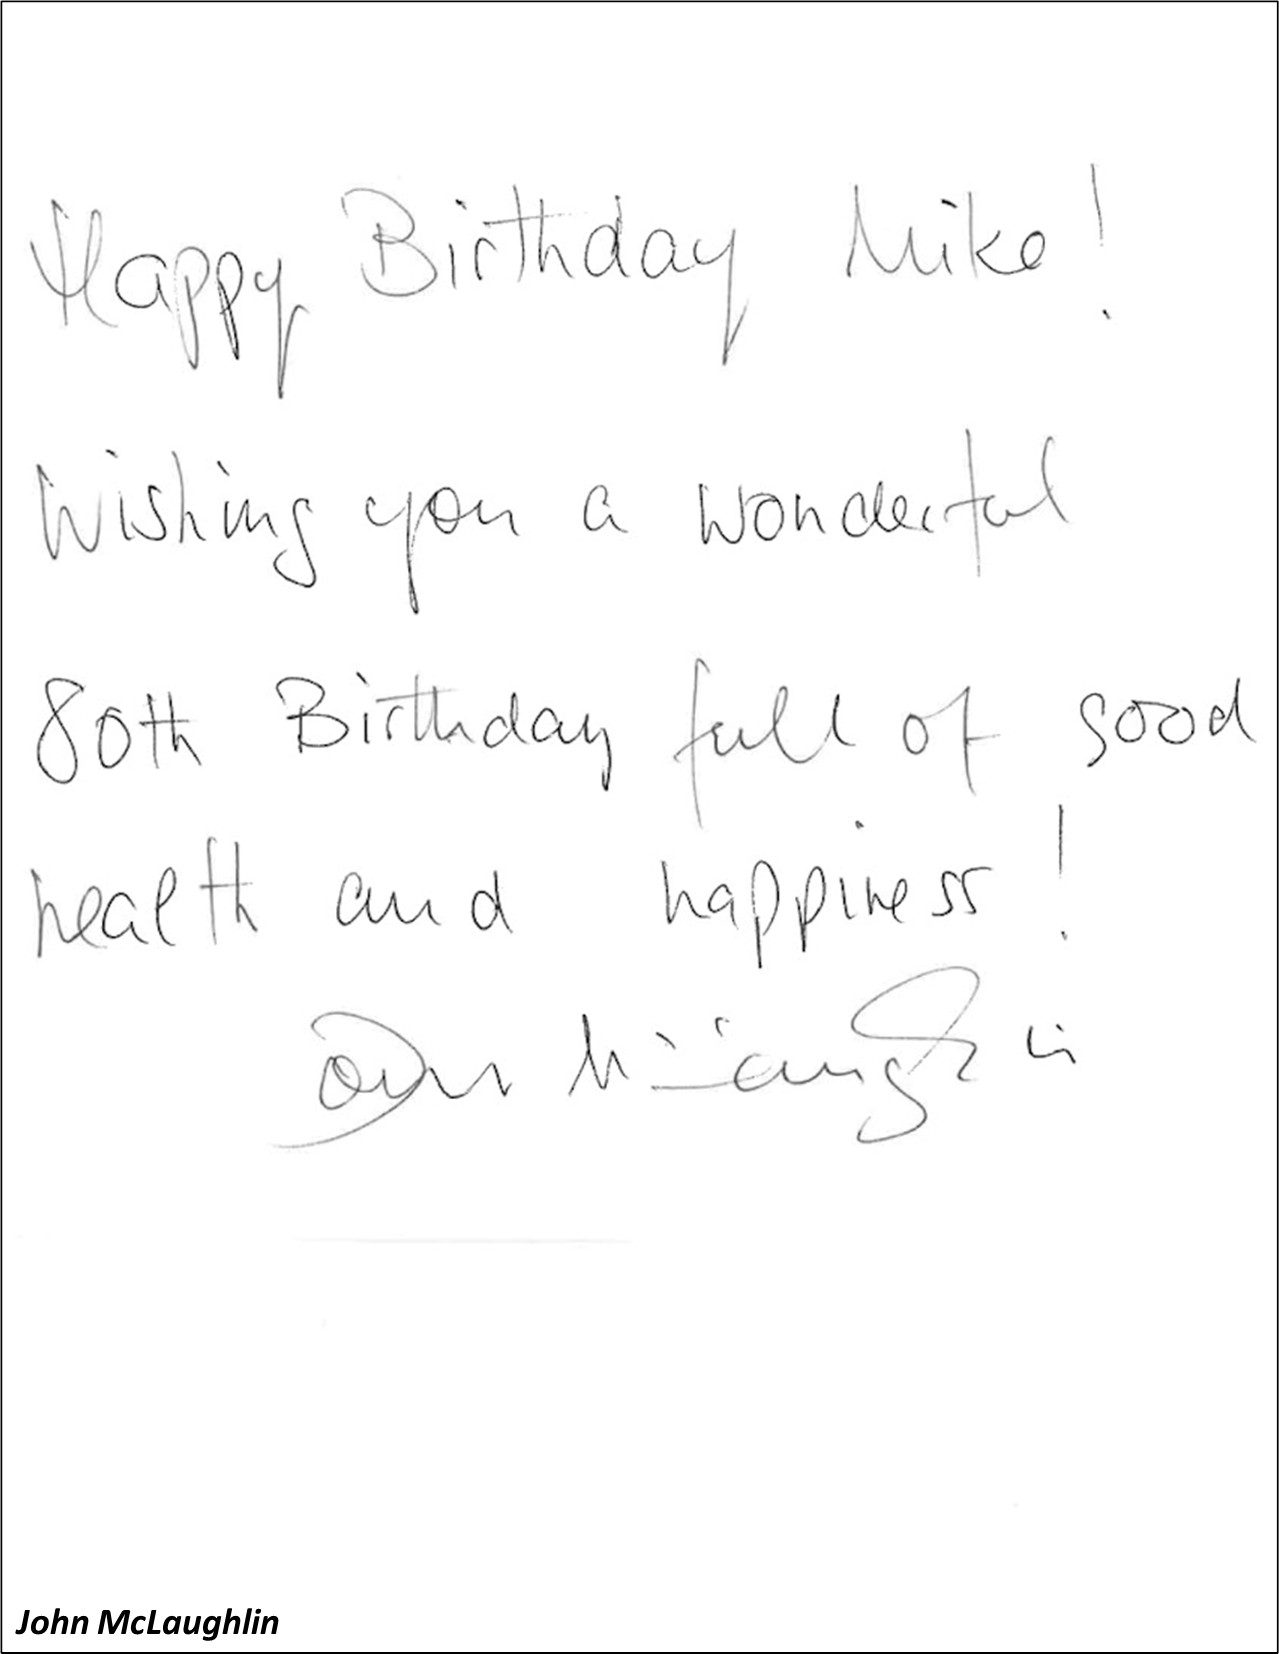 Happy Birthday Mike!
Wishing you a wonderful
80th Birthday full of good
health and happiness!
John McLaughlin
John McLaughlin